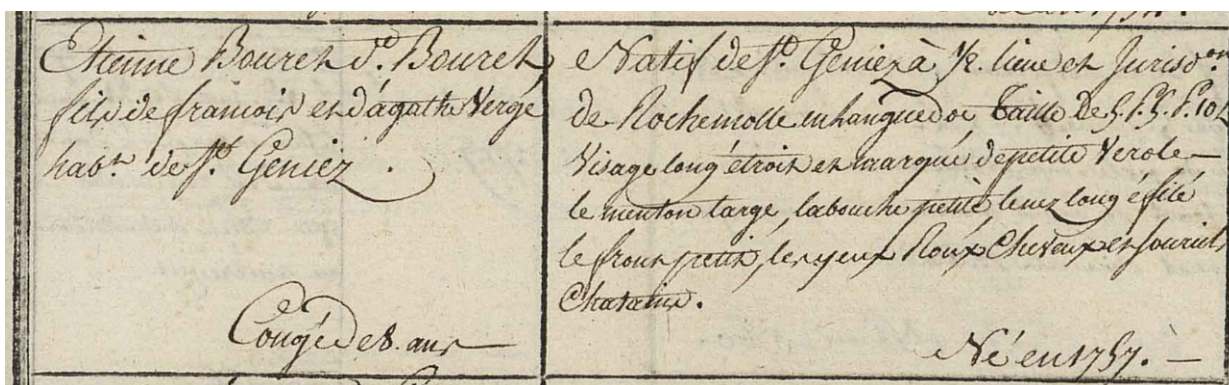 Etienne Bouret d.t Bouret
fils de francois et d'agathe Vergé
hab.t de S.t Geniez.
Congé de 8. ans
Natif de S.t Geniez à 1/2. lieue et Jurisd.on
de Rochemolle en Languedoc taille De 5. P. 5. P. 10
Visage long étroit et marqué de petite Verole
le menton large, la bouche petite le nez long éfilé
le front petit, les yeux Roux Cheveux et sourcils
Chatains.
Né en 1757.